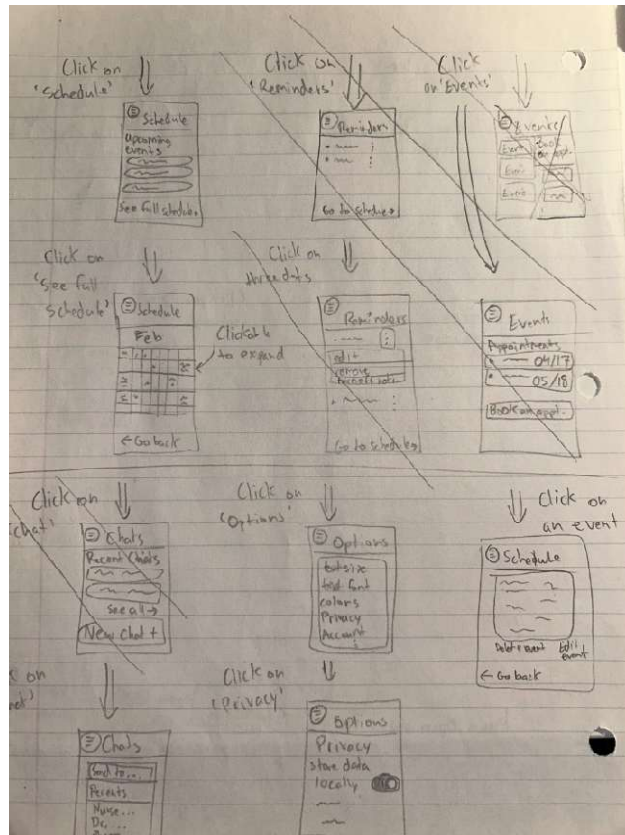 Click on
'Schedule'
Schedule
Upcoming
events
See full schedule→
Click on
'Reminders'
Reminders
Go to schedule→
Click
on 'Events'
Events
Event
Event
Event
Book
Click on
'See full
schedule'
Schedule
Feb
← Go back
Clickable
to expand
Click on
three dots
Reminders
edit
remove
Go to schedule→
Events
Appointments
04/17
05/18
Book an appt.
Click on
'Chat'
Chats
Recent Chats
See all →
New chat +
Click on
'Options'
Options
text size
text font
colors
Privacy
Account
Click on
an event
Schedule
Delete event
Edit
event
← Go back
Chats
Send to...
Parents
Nurse...
Dr....
Click on
'Privacy'
Options
Privacy
store data
locally